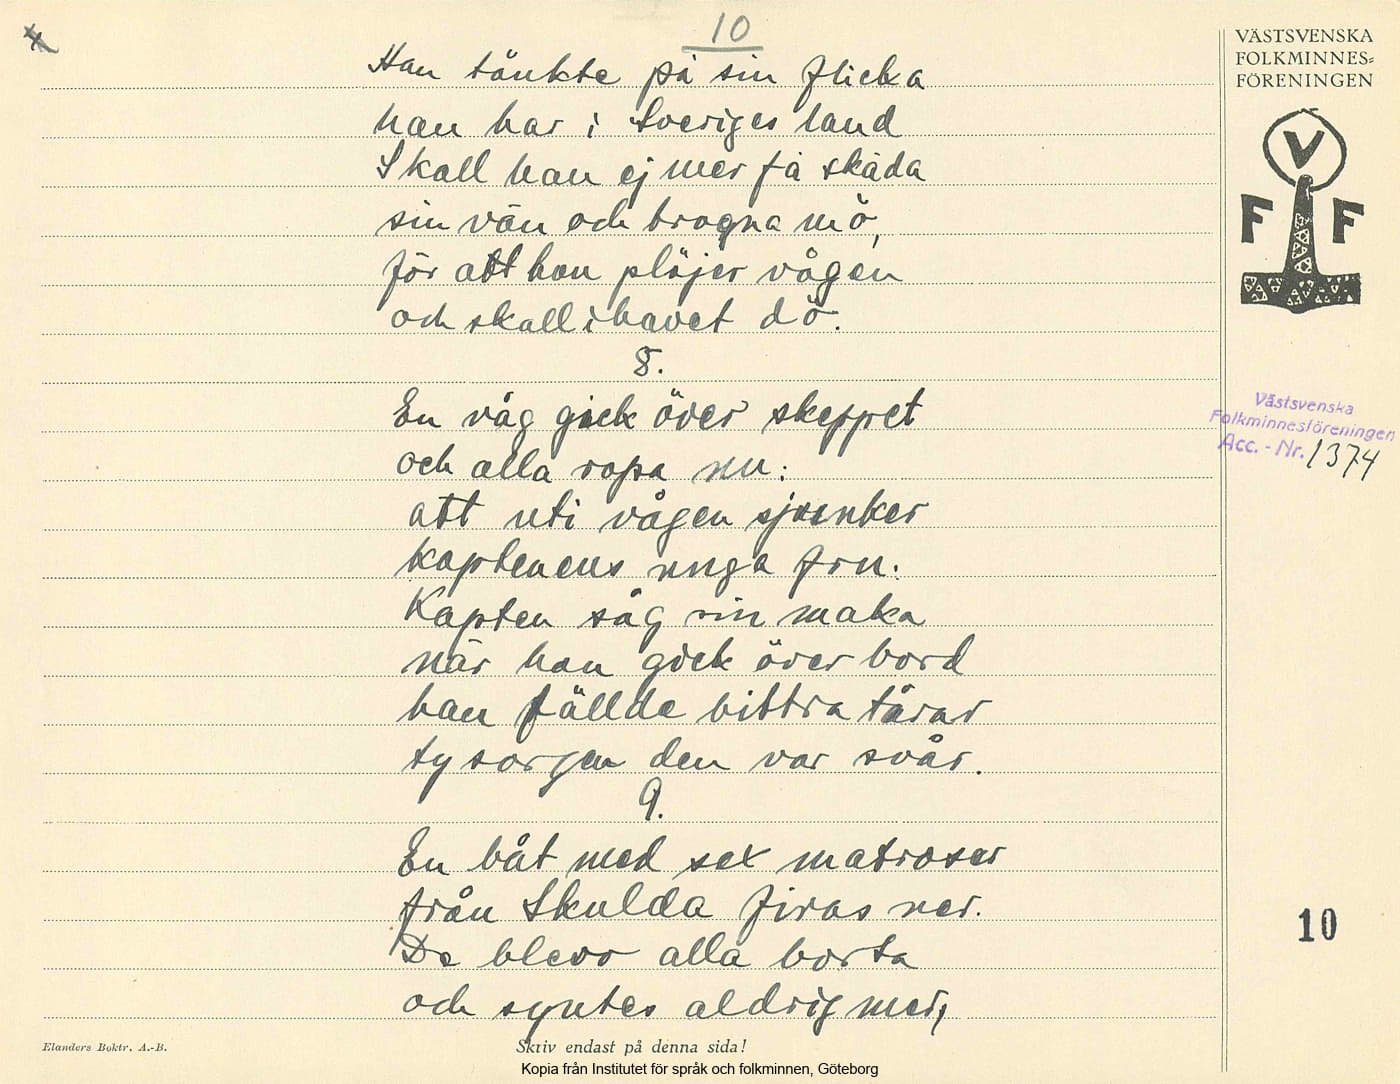 10
Han tänkte på sin flicka
han har i Sveriges land
Skall han ej mer få skåda
sin vän och trogna mö,
för att han plöjer vågen
och skall i havet dö.
8.
En våg gick över skeppet
och alla ropa nu:
att uti vågen sjunker
kaptenens unga fru.
Kapten såg sin maka
när han gick över bord
han fällde bittra tårar
ty sorgen den var svår.
9.
En båt med sex matroser
från Skulda firas ner.
De blevo alla borta
och syntes aldrig mer,
VÄSTSVENSKA
FOLKMINNES=
FÖRENINGEN
V
F F
Västsvenska
Folkminnesföreningen
Acc. - Nr. 1374
10
Elanders Boktr. A.-B.
Skriv endast på denna sida!
Kopia från Institutet för språk och folkminnen, Göteborg